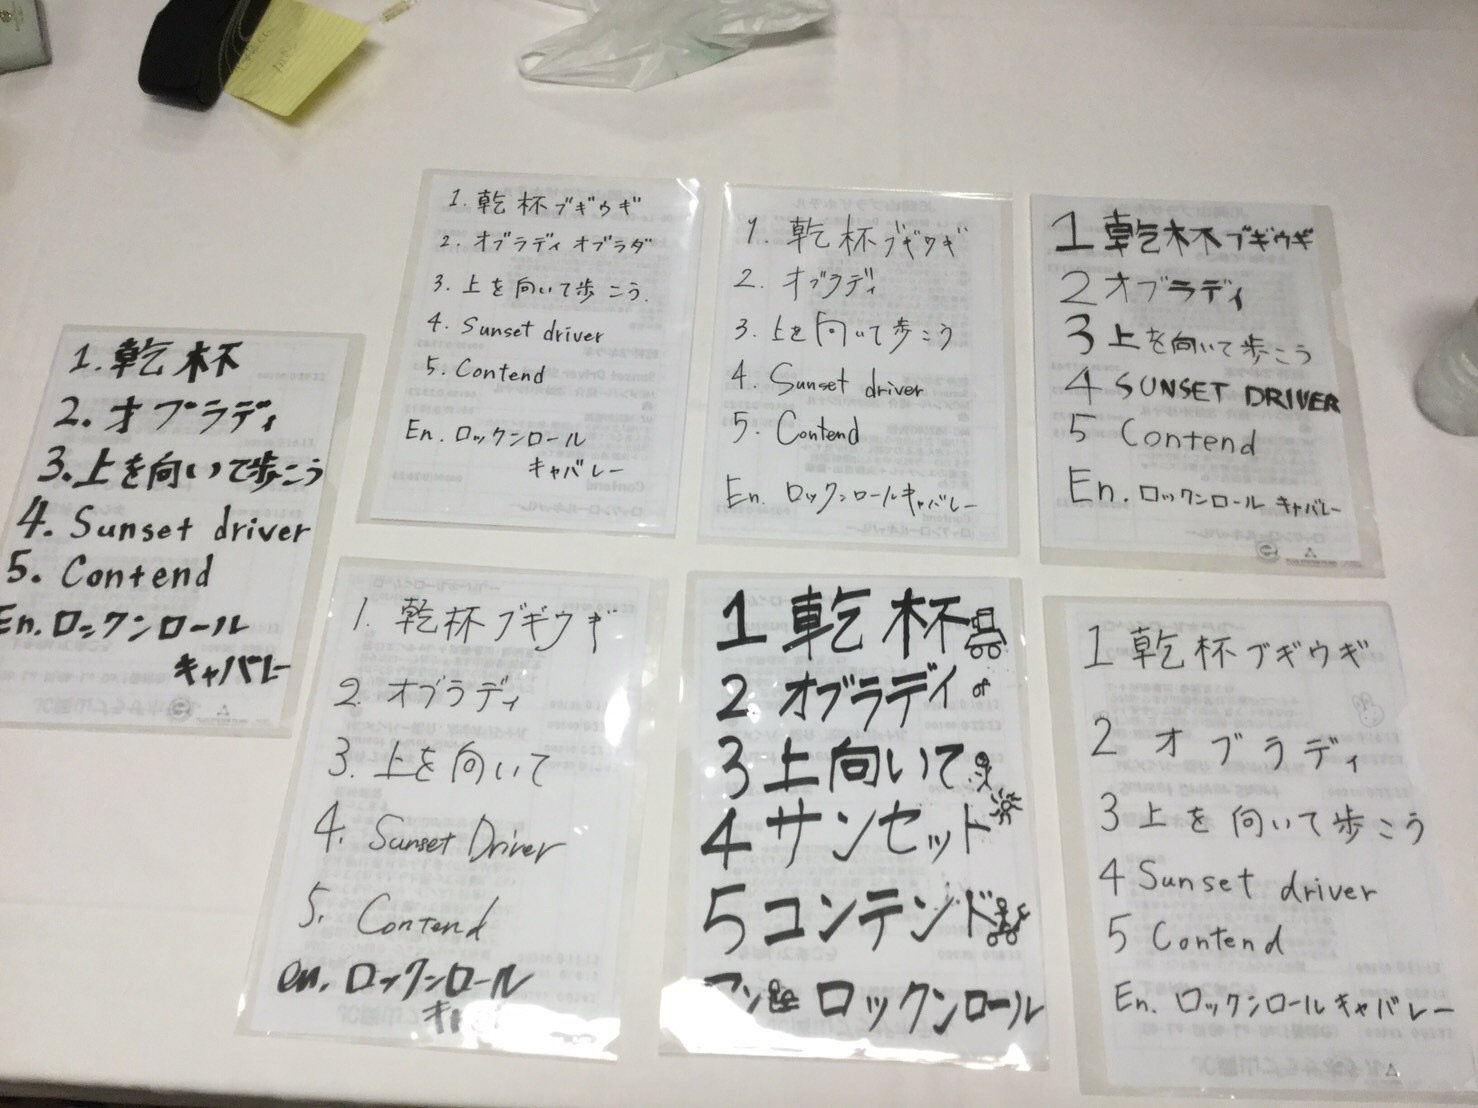 1. 乾杯
2. オブラディ
3. 上を向いて歩こう
4. Sunset driver
5. Contend
En. ロックンロール
キャバレー
1. 乾杯ブギウギ
2. オブラディオブラダ
3. 上を向いて歩こう.
4. Sunset driver
5. Contend
En. ロックンロール
キャバレー
1. 乾杯ブギウギ
2. オブラディ
3. 上を向いて歩こう
4. Sunset driver
5. Contend
En. ロックンロールキャバレー
1 乾杯ブギウギ
2 オブラディ
3 上を向いて歩こう
4 SUNSET DRIVER
5 Contend
En. ロックンロールキャバレー
1. 乾杯ブギウギ
2. オブラディ
3. 上を向いて
4. Sunset Driver
5. Contend
en. ロックンロール
1 乾杯
2 オブラディ
3 上向いて
4 サンセット
5 コンテンド
ロックンロール
1 乾杯ブギウギ
2 オブラディ
3 上を向いて歩こう
4 Sunset driver
5 Contend
En. ロックンロールキャバレー